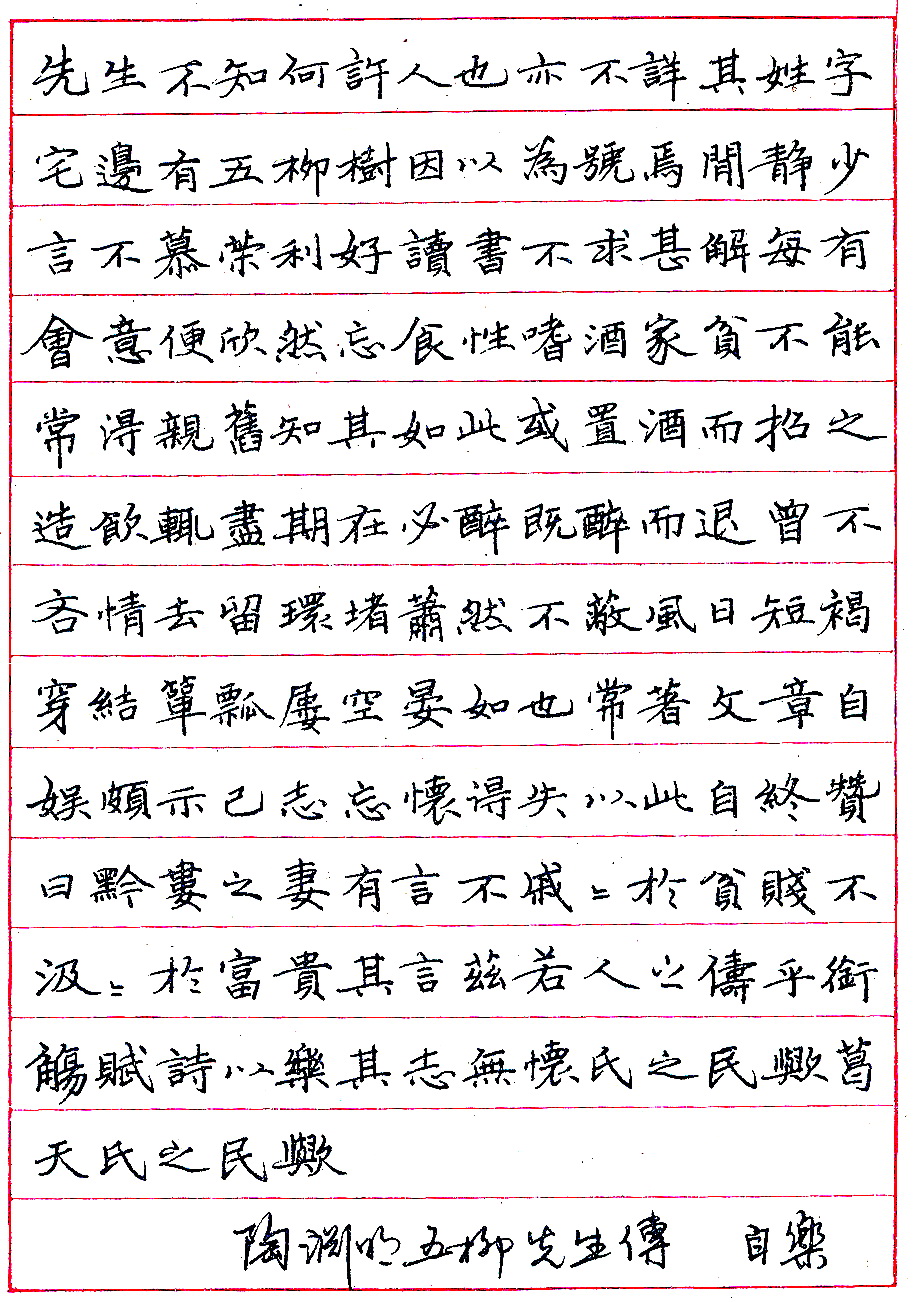 先生不知何許人也亦不詳其姓字
宅邊有五柳樹因以為號焉閒静少
言不慕荣利好讀書不求甚解每有
會意便欣然忘食性嗜酒家貧不能
常得親舊知其如此或置酒而招之
造飲輒盡期在必醉既醉而退曾不
吝情去留環堵蕭然不蔽風日短褐
穿結簞瓢屢空晏如也常著文章自
娱頗示己志忘懷得失以此自終贊
曰黔婁之妻有言不戚〻於貧賤不
汲〻於富貴其言茲若人之儔乎銜
觴賦詩以樂其志無懷氏之民歟葛
天氏之民歟
陶淵明五柳先生傳 自樂